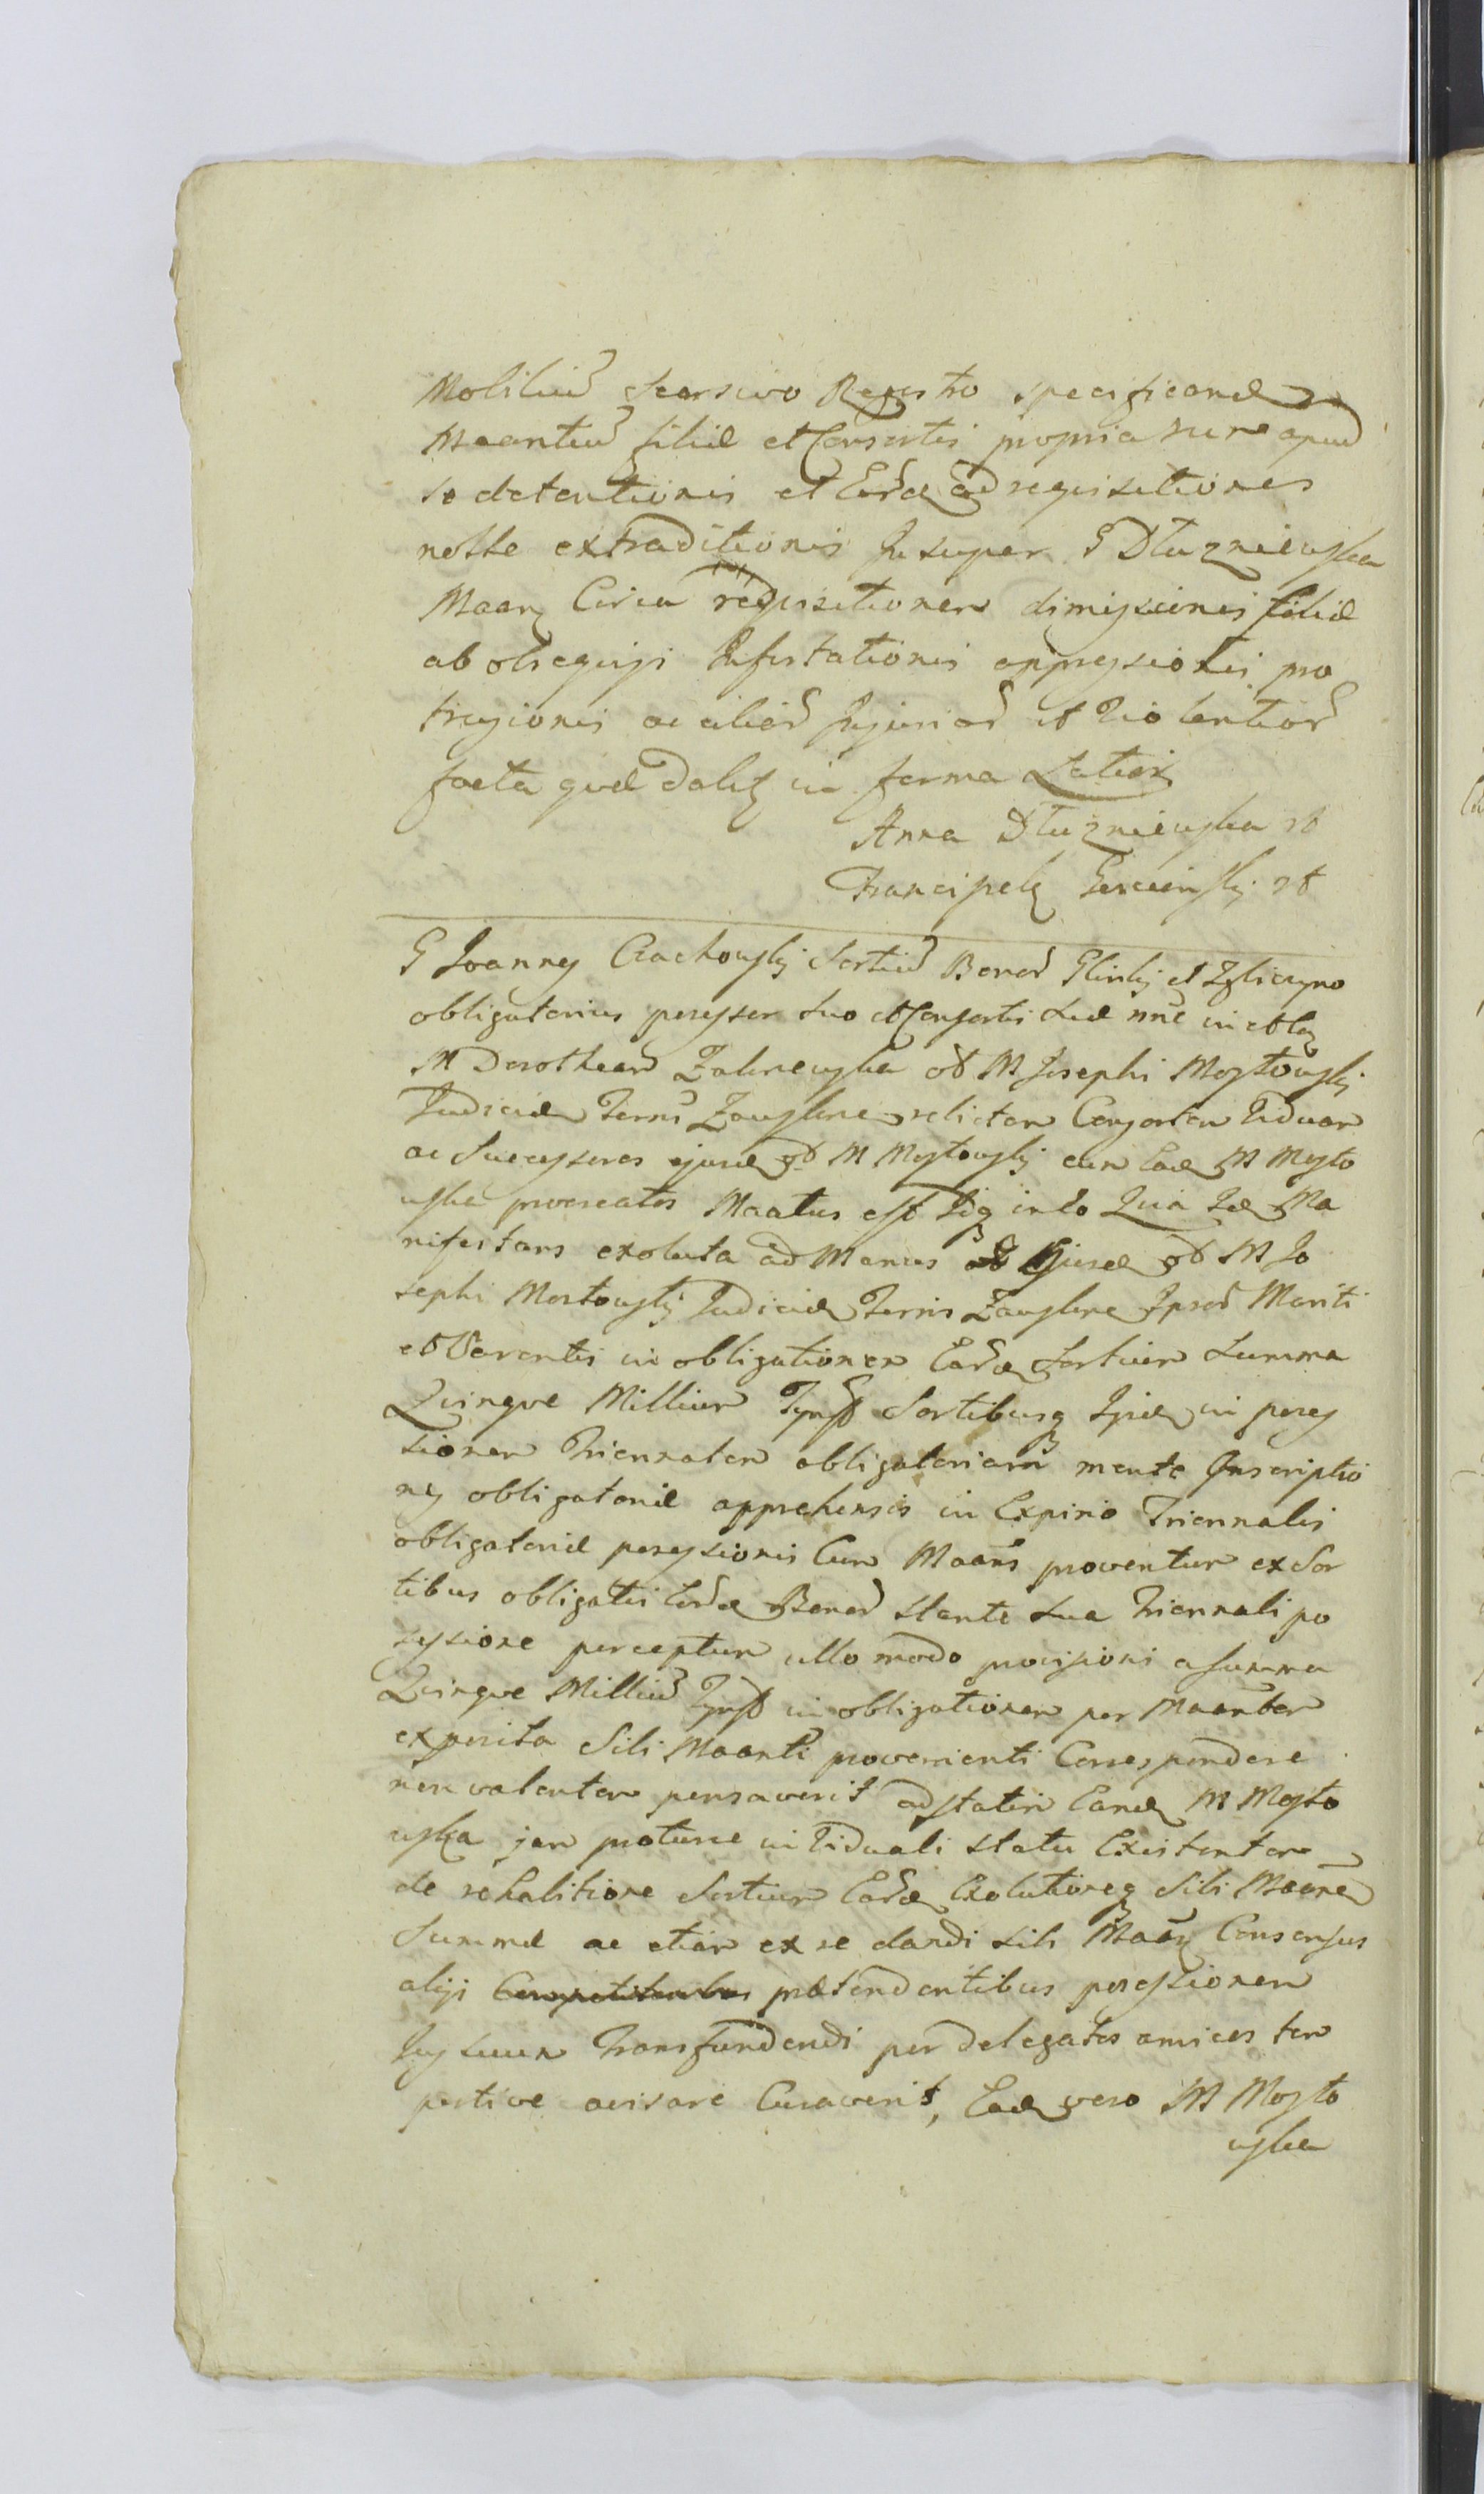 Mobiliu Seorsivo Regestro specificand
Maantiu filiæ et Consortis propria nunc apud
se detentionis et Eord ad requisitiones
nolle extraditionis Insuper G Dłuzniewska
Maan Circa requisitionem dimissionis filiæ
ab obsequijs Infestationis oppressionis pro
ac aliar Injuriar et Violentiar
facta quæ in forma Latiori
Anna Dłuzniewska mp
mp
G Joannes Czachowski Sortiu Bonor Glinki et Zglicyno
obligatorius possessor suo et Consortis suæ nne in et co
M Dorothean Zakrzewska ol M Josephi Mostowski
Judicis Terris Zawskrne relictam Consortem Viduam
ac Successores ejusd ol M Mostowski cum Ead M Mosto
wska procreatos Maatus est Idq in eo Quia Id Ma
nifestans exoluta ad Manus ejusd ol M Jo
sephi Mostowski Judicis Terris Zawskrne Ipsor Mariti
et Parentis in obligationem Eard Sortium Summa
Quinque Millium Tynff Sortibusq Ijsd in posses
sionem Triennalem obligatoriam mente Inscriptio
nis obligatoriæ apprehensis in Expirio Triennalis
obligatoriæ possessionis Cum Maans proventum ex Sor
tibus obligatis Eord Bonor stante sua Triennali po
ssessione perceptum ullo modo provisioni a Summa
Quinque Milliu Tynff in obligationem per Maantem
exposita Sibi Maanti provenienti Correspondere
non valentem pensaverit adstatim Eand M Mosto
wska jam protunc in Viduali statu Existentem
de rehabitione Sortium Eard Exolutioneq Sibi Maane
Summæ ac etiam ex se dandi sibi Maan Consensus
alijs prætendentibus possessionem
Jus suum Transfundendi per delegatos amicos tem
pestive avisare Curaverit, Ead vero M Mosto
wska